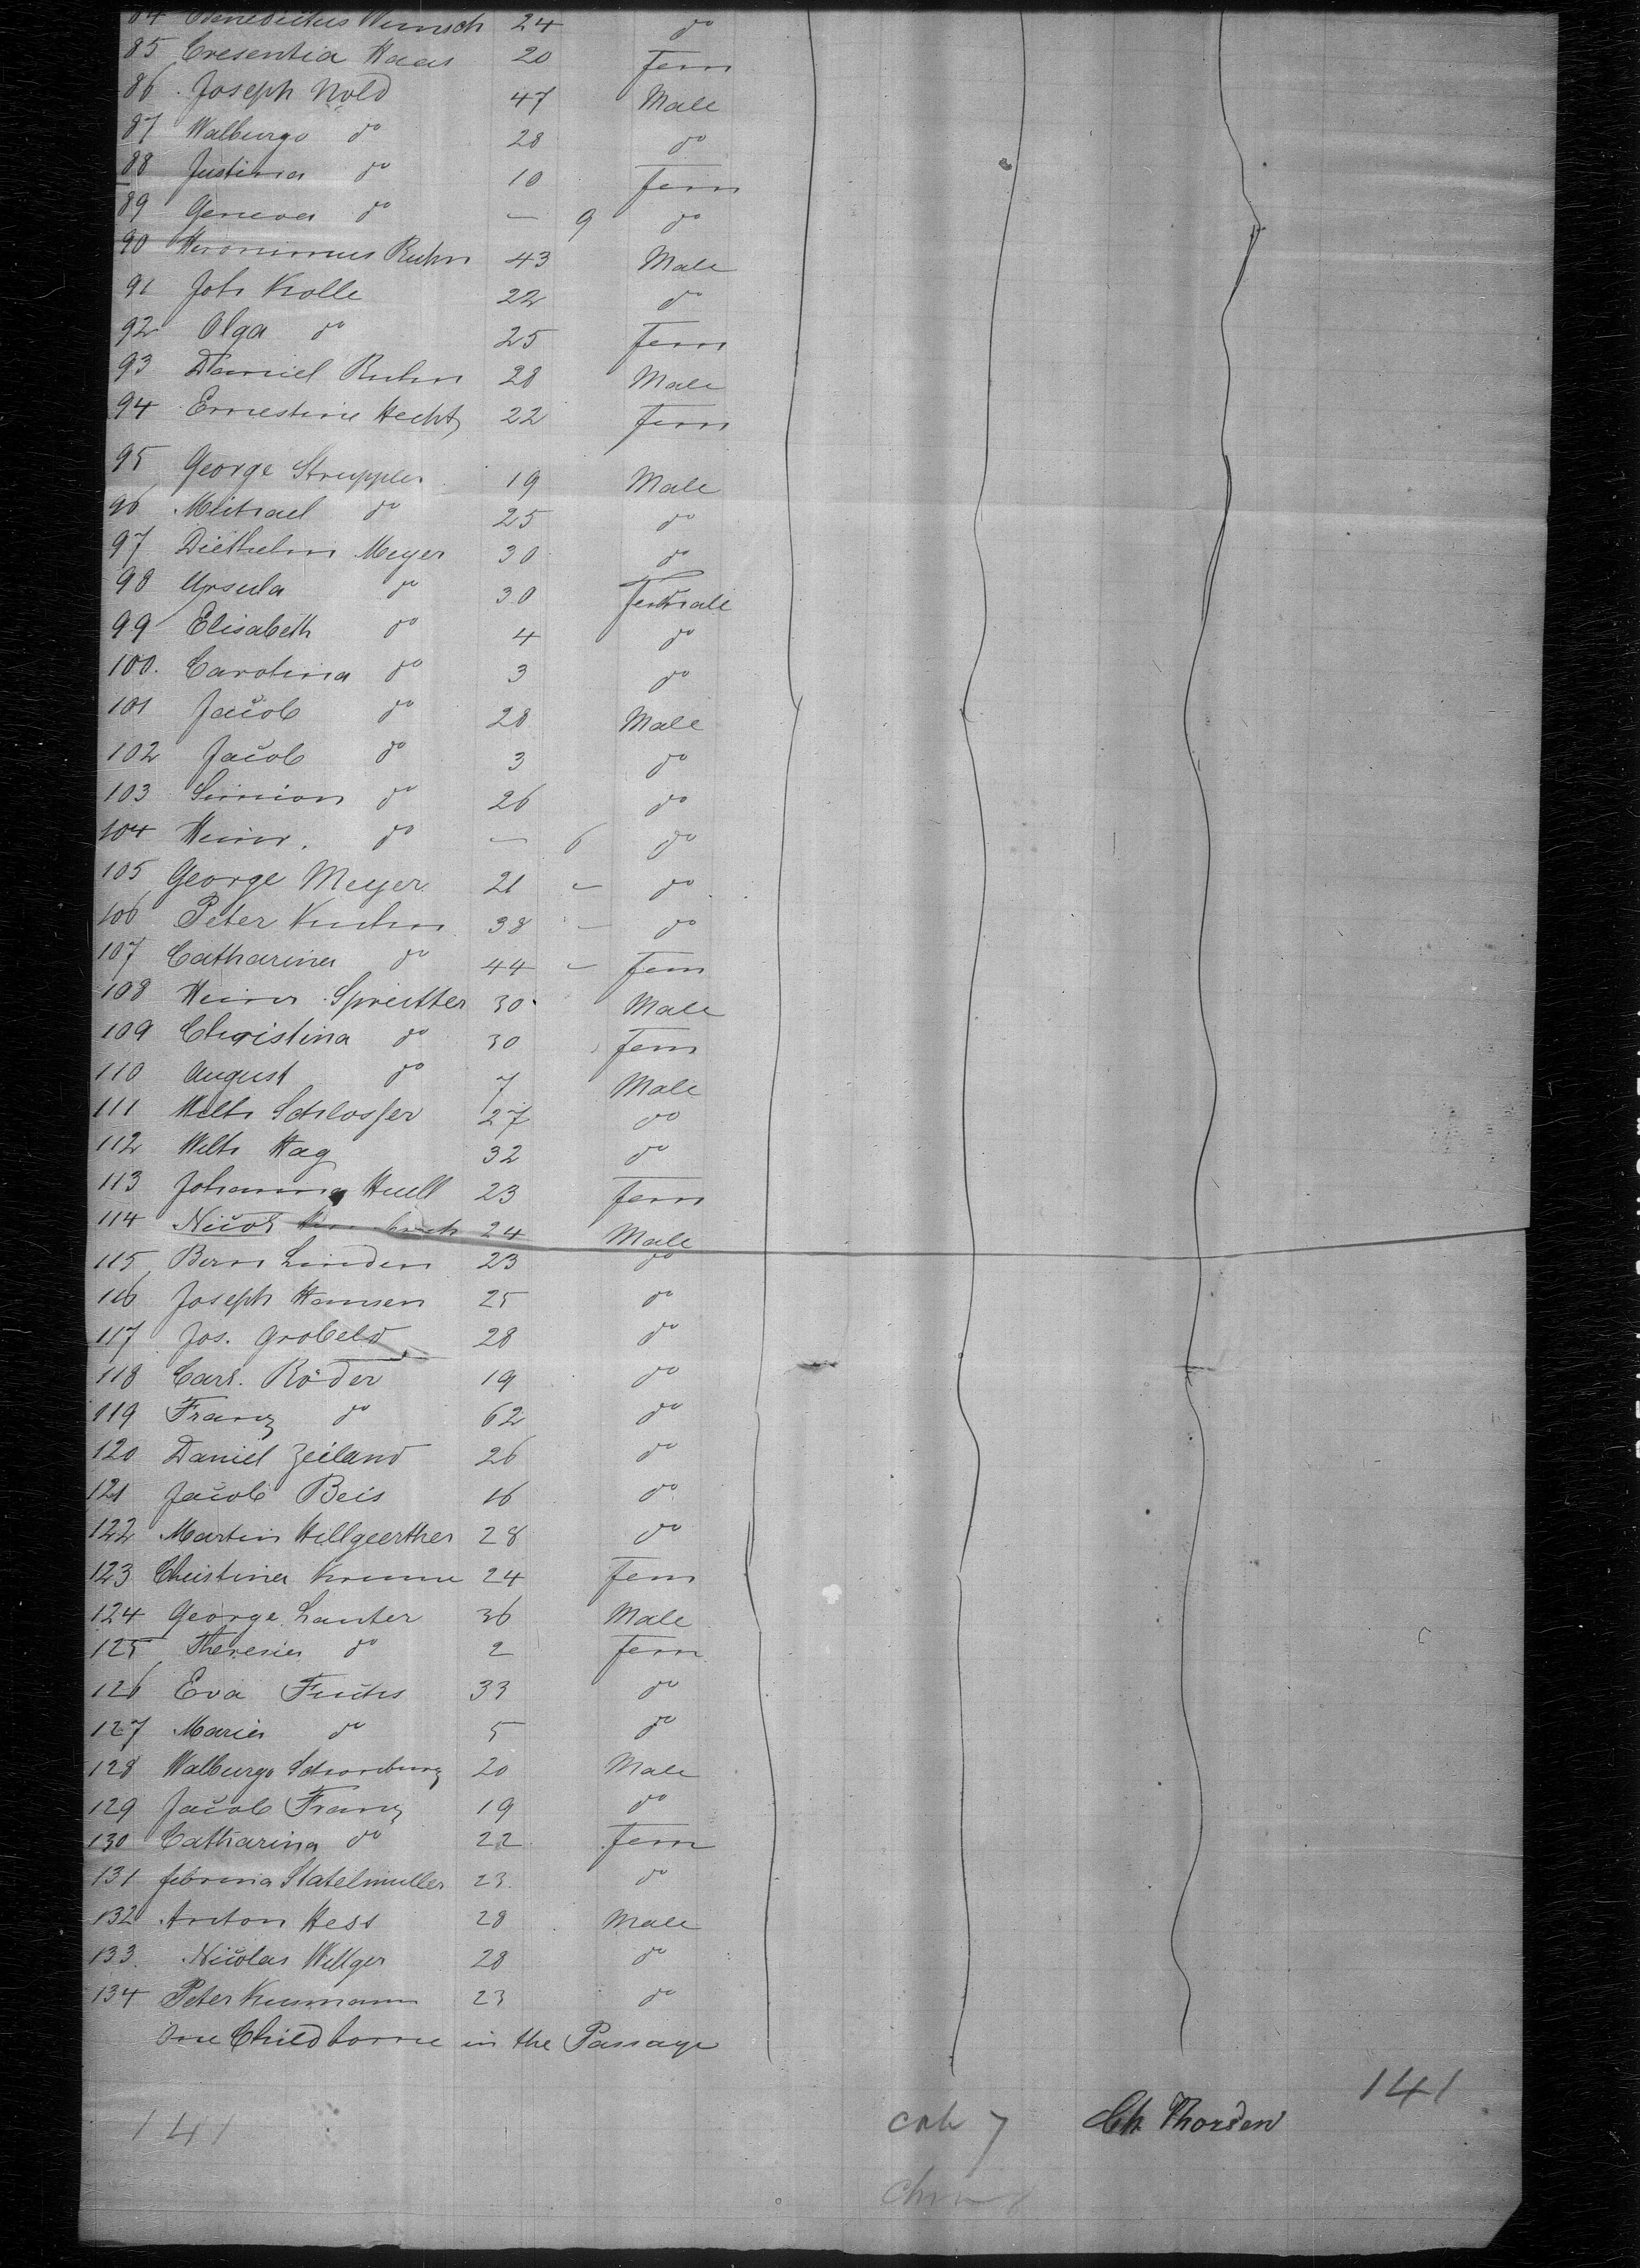 84 Benedictus Wunsch 24 do
85 Cresentia Haas 20 Fem
86 Joseph Nold 47 Male
87 Walburga do 28 do
88 Justina do 10 Fem
89 Geneva do — 9 do
90 Heronimus Ruhn 43 Male
91 Joh Krolle 22 do
92 Olga do 25 Fem
93 Daniel Ruhn 28 Male
94 Ernestine Hecht 22 Fem
95 George Struppler 19 Male
96 Michael do 25 do
97 Diethelm Meyer 30 do
98 Ursula do 30 Female
99 Elisabeth do 4 do
100. Carolina do 3 do
101 Jacob do 28 Male
102 Jacob do 3 do
103 Simion do 26 do
104 Heinr. do — 6 do
105 George Meyer 21 — do
106 Peter Kuhn 38 — do
107 Catharina do 44 — Fem
108 Heinr Spreitter 30 Male
109 Christina do 30 Fem
110 August do 7 Male
111 Wilh Schlosser 27 do
112 Wilh Hag 32 do
113 Johanna Huell 23 Fem
114 Nicol 24 Male
115 Bern Linden 23 do
116 Joseph Hansen 25 do
117 Jos. Grobeld 28 do
118 Carl. Röder 19 do
119 Franz do 62 do
120 Daniel Zeiland 26 do
121 Jacob Beis 16 do
122 Martin Hellgerther 28 do
123 Christina Krume 24 Fem
124 George Lauter 36 Male
125 Theresia do 2 Fem
126 Eva Fuchs 33 do
127 Maria do 5 do
128 Walburga Schonburg 20 Male
129 Jacob Franz 19 do
130 Catharina do 22 Fem
131 Statelmuller 23. do
132 Anton Hess 28 Male
133. Nicolas Wellger 28 do
134 Peter Kusmann 23 do
One Child borne in the Passage
141
141 cab 7 Ch. Thorden